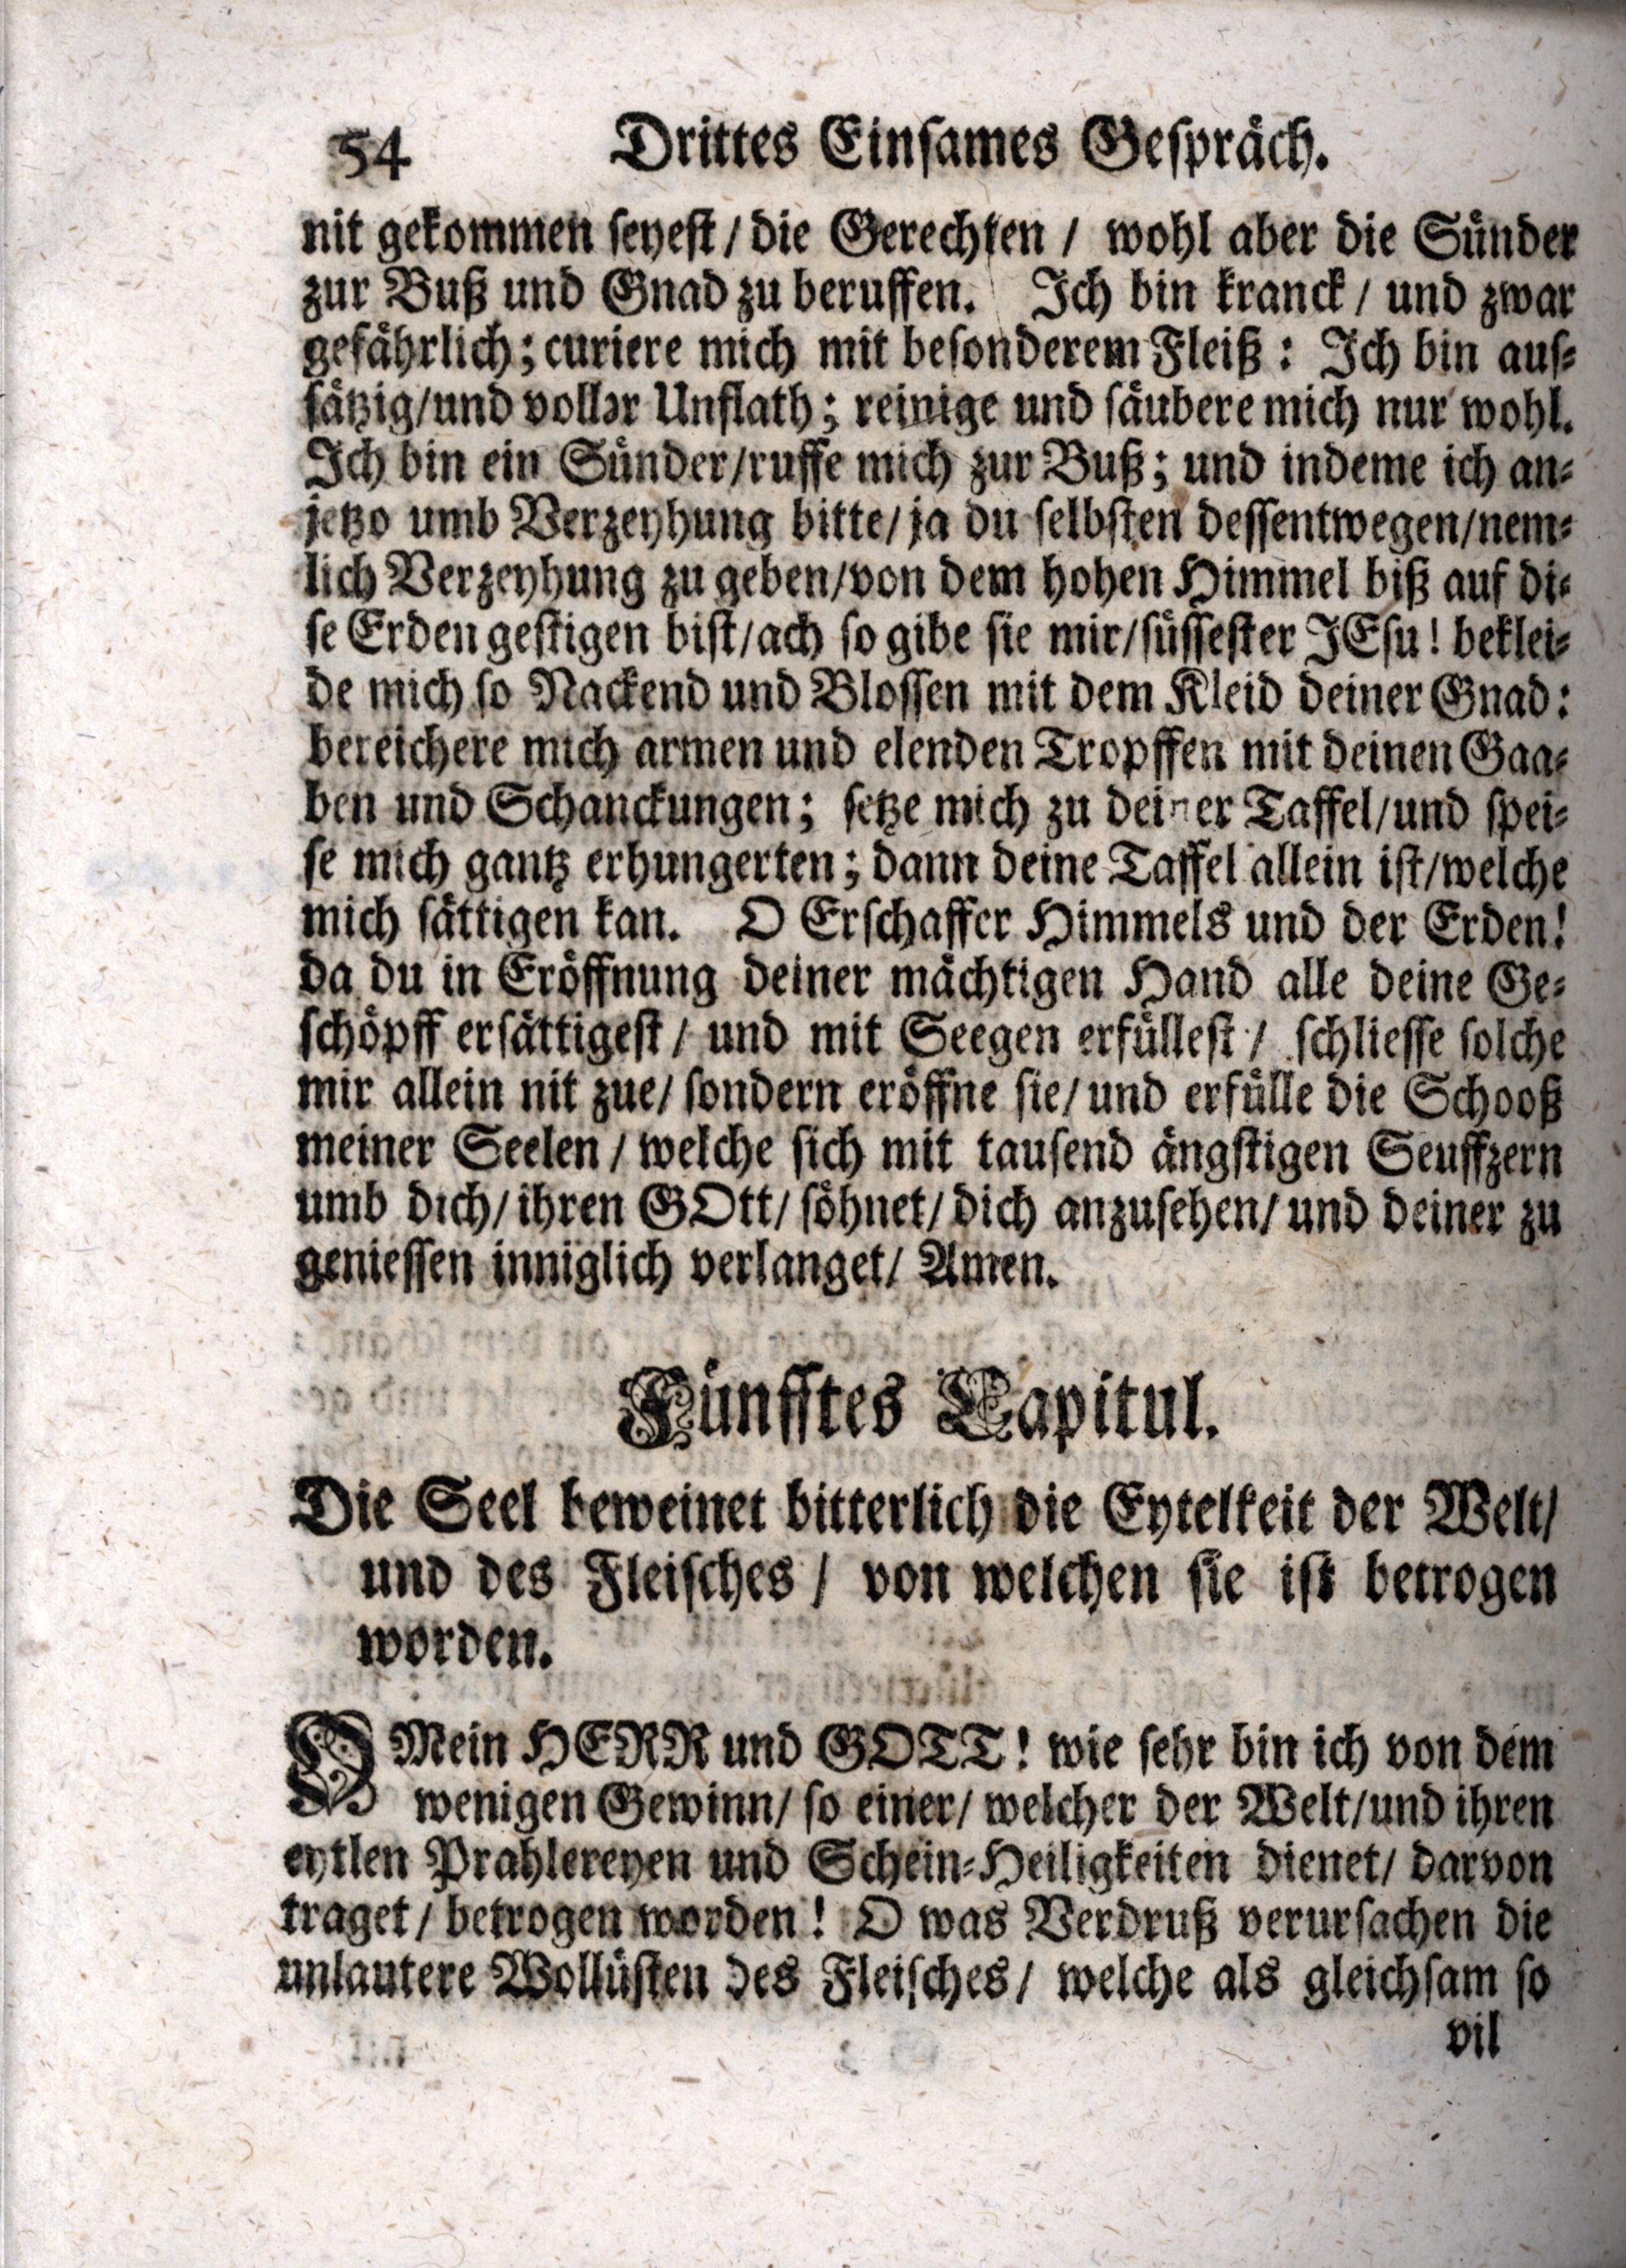 54 Drittes Einsames Gespräch.
nit gekommen seyest / die Gerechten / wohl aber die Sünder
zur Buß und Gnad zu beruffen. Ich bin kranck / und zwar
gefährlich; curiere mich mit besonderem Fleiß: Ich bin aus-
sätzig/und voller Unflath; reinige und säubere mich nur wohl.
Ich bin ein Sünder/ruffe mich zur Buß; und indeme ich an-
jetzo umb Verzeyhung bitte/ja du selbsten dessentwegen/nem-
lich Verzeyhung zu geben/von dem hohen Himmel biß auf di-
se Erden gestigen bist/ach so gibe sie mir/süssester JEsu! beklei-
de mich so Nackend und Blossen mit dem Kleid deiner Gnad:
bereichere mich armen und elenden Tropffen mit deinen Gaa-
ben und Schanckungen; setze mich zu deiner Taffel/und spei-
se mich gantz erhungerten; dann deine Taffel allein ist/welche
mich sättigen kan. O Erschaffer Himmels und der Erden!
da du in Eröffnung deiner mächtigen Hand alle deine Ge-
schöpff ersättigest / und mit Seegen erfüllest / schliesse solche
mir allein nit zue/ sondern eröffne sie/ und erfülle die Schooß
meiner Seelen / welche sich mit tausend ängstigen Seuffzern
umb dich/ ihren GOtt/ söhnet/ dich anzusehen/ und deiner zu
geniessen inniglich verlanget/ Amen.
Fünfftes Capitul.
Die Seel beweinet bitterlich die Eytelkeit der Welt/
und des Fleisches / von welchen sie ist betrogen
worden.
O Mein HERR und GOTT! wie sehr bin ich von dem
wenigen Gewinn/ so einer/ welcher der Welt/und ihren
eytlen Prahlereyen und Schein-Heiligkeiten dienet/ darvon
traget / betrogen worden! O was Verdruß verursachen die
unlautere Wollüsten des Fleisches/ welche als gleichsam so
vil